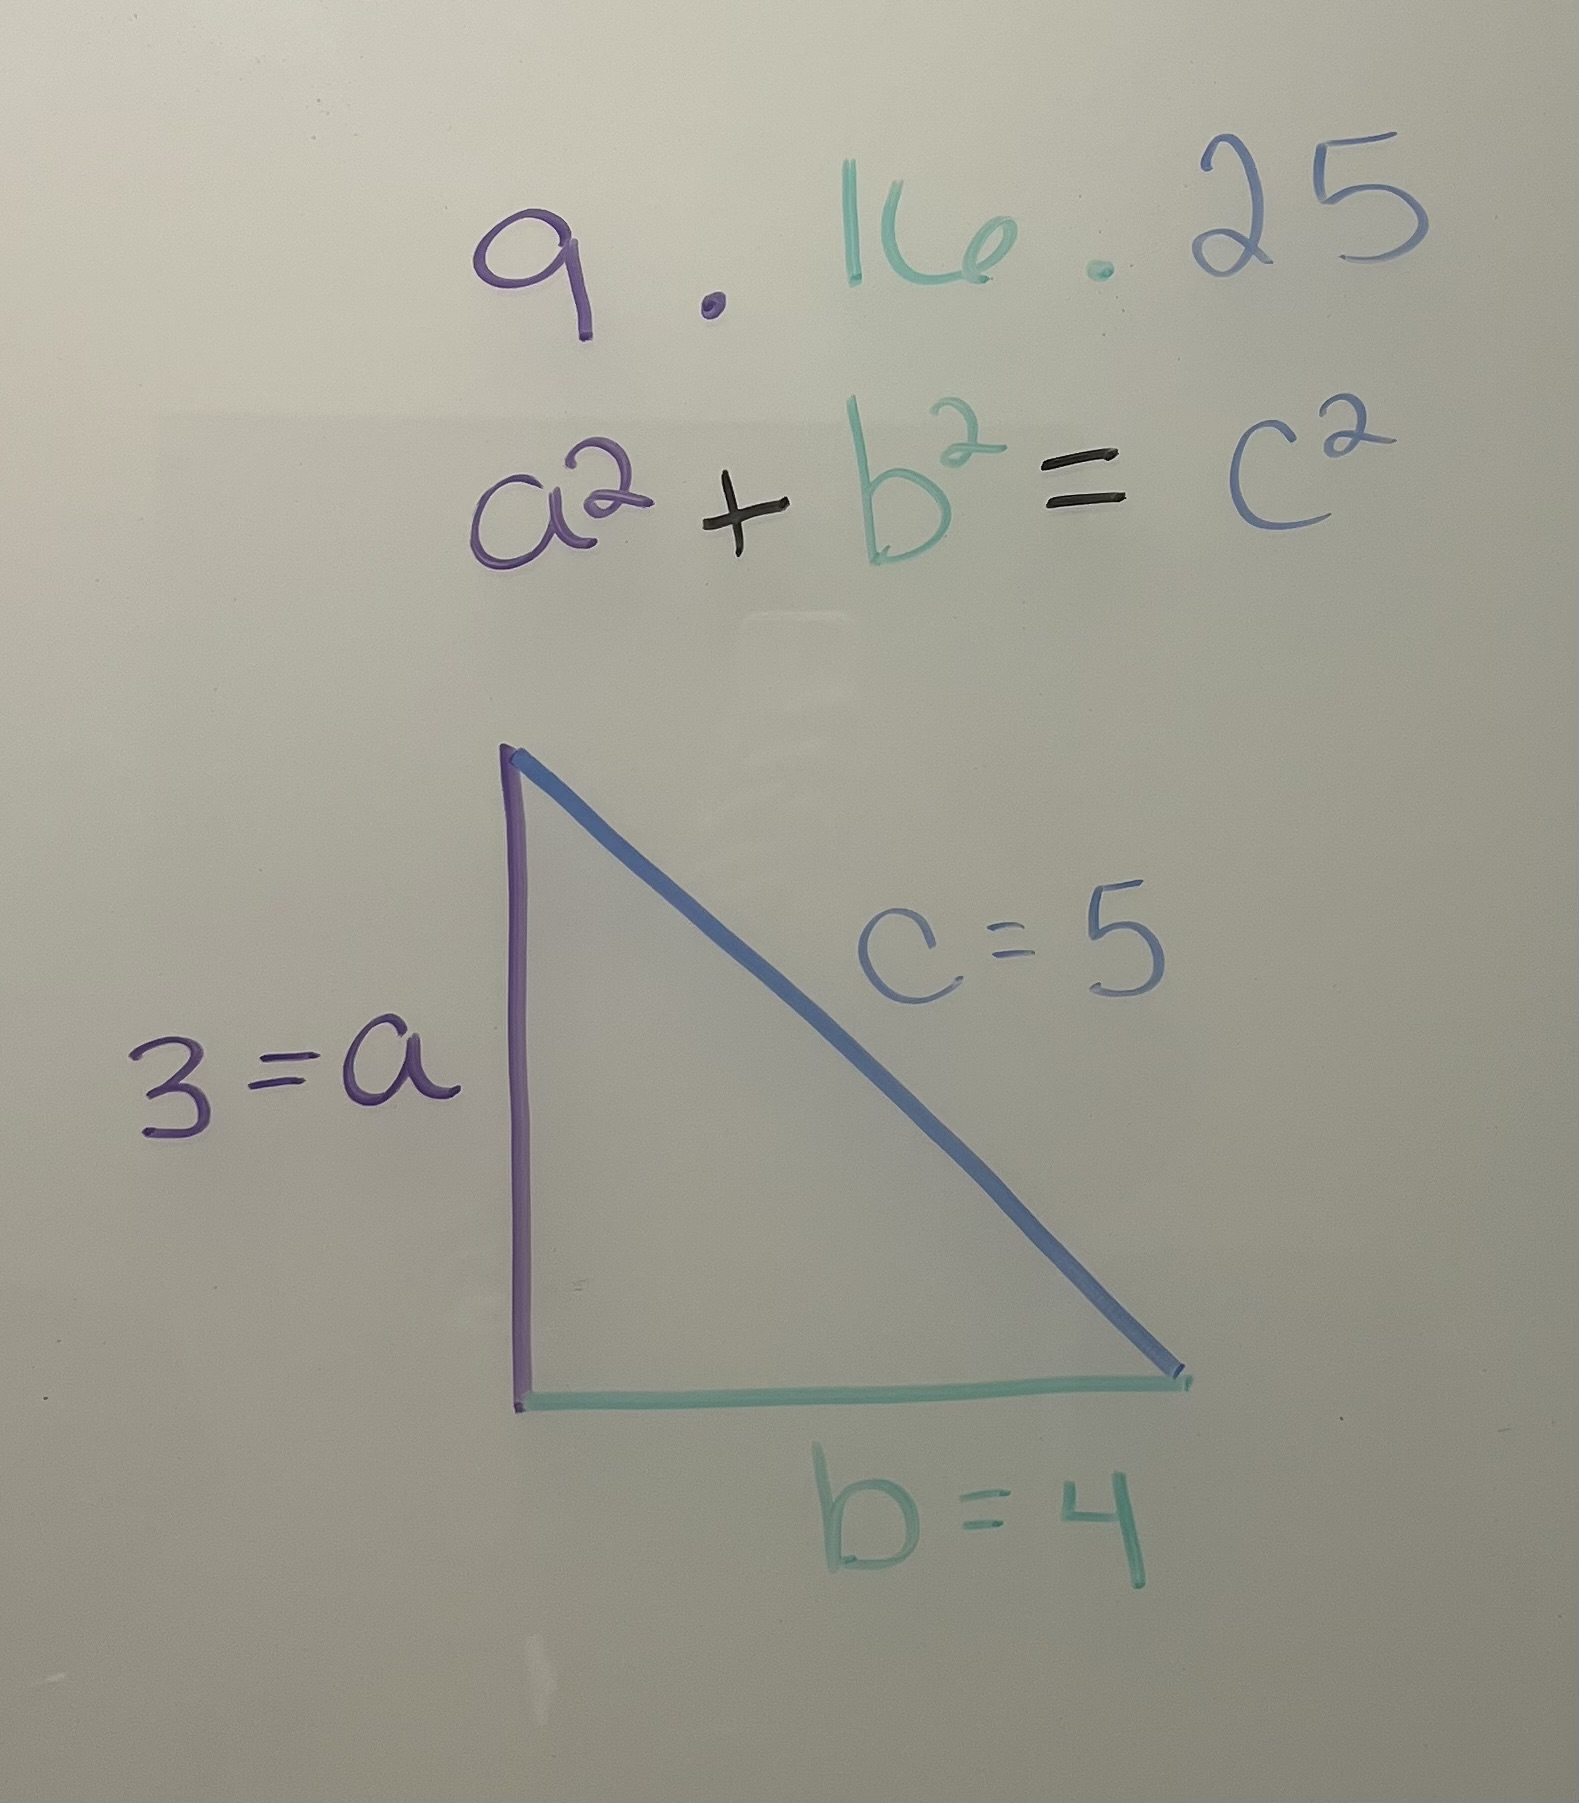 9 . 16 . 25
a² + b² = c²
c = 5
3 = a
b = 4